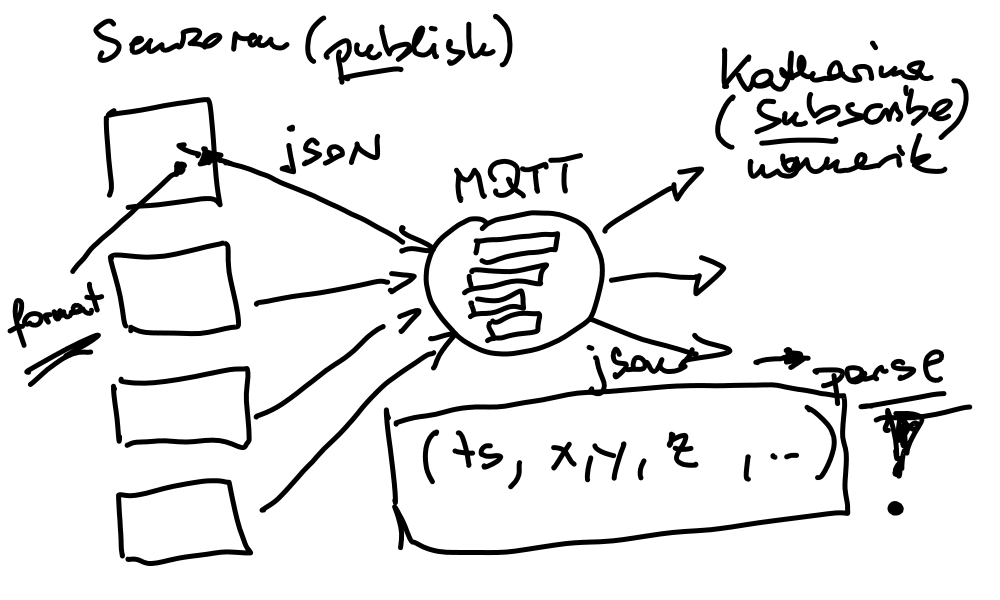 Sensoren (publish)
json
MQTT
Katharina
(subscribe)
numerik
format
json
parse
(ts, x, y, z , ...)